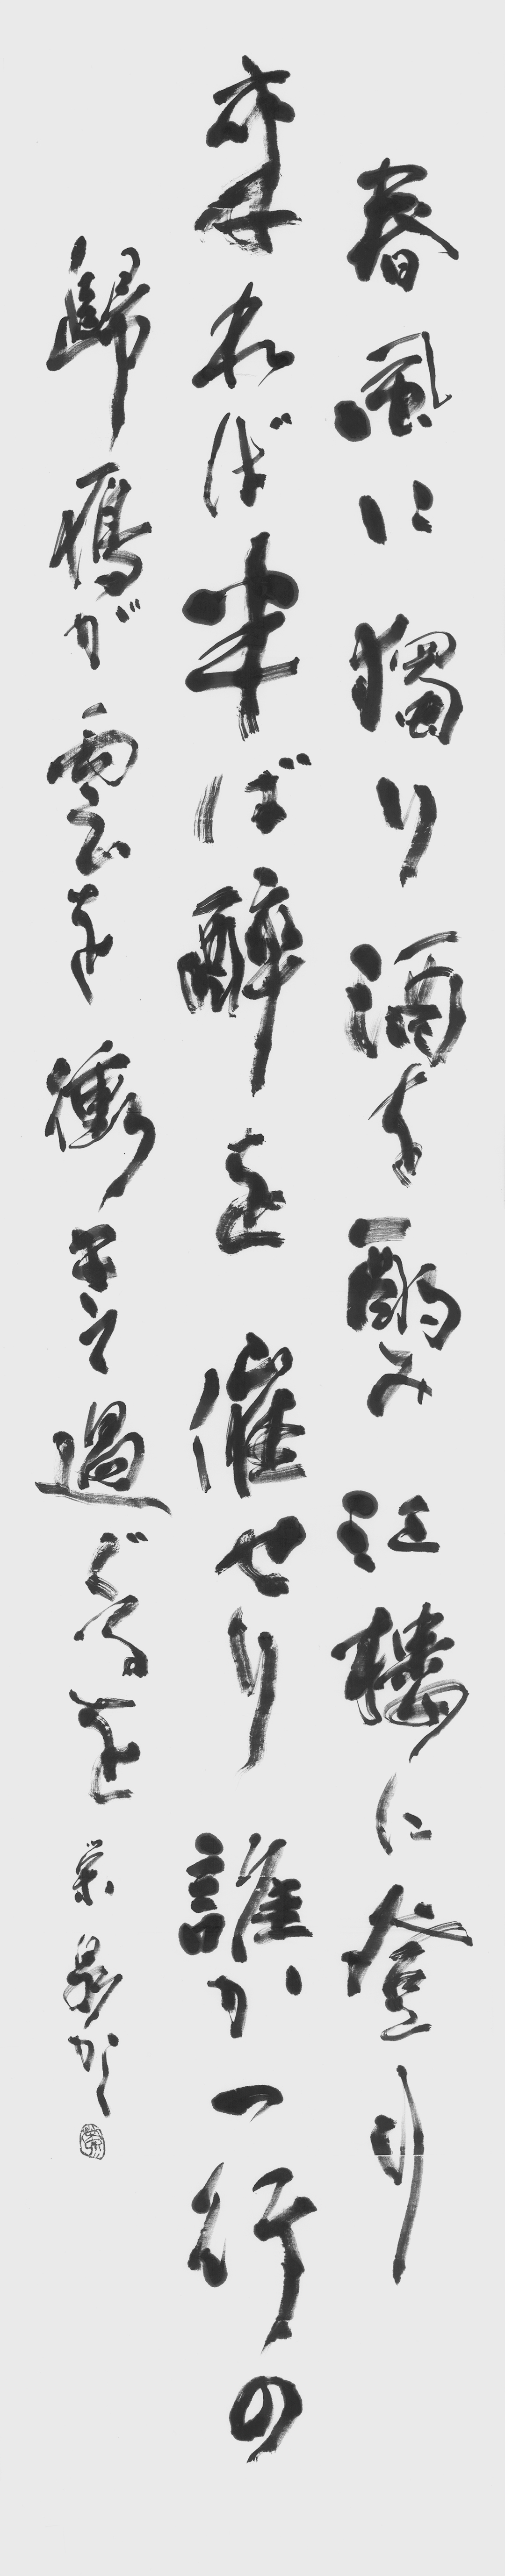 春風に獨り酒を酌み江楼に登り
来れば半ば醉を催せり誰か一行の
歸鴈が雲を衝きて過ぐるを 栄泉かく